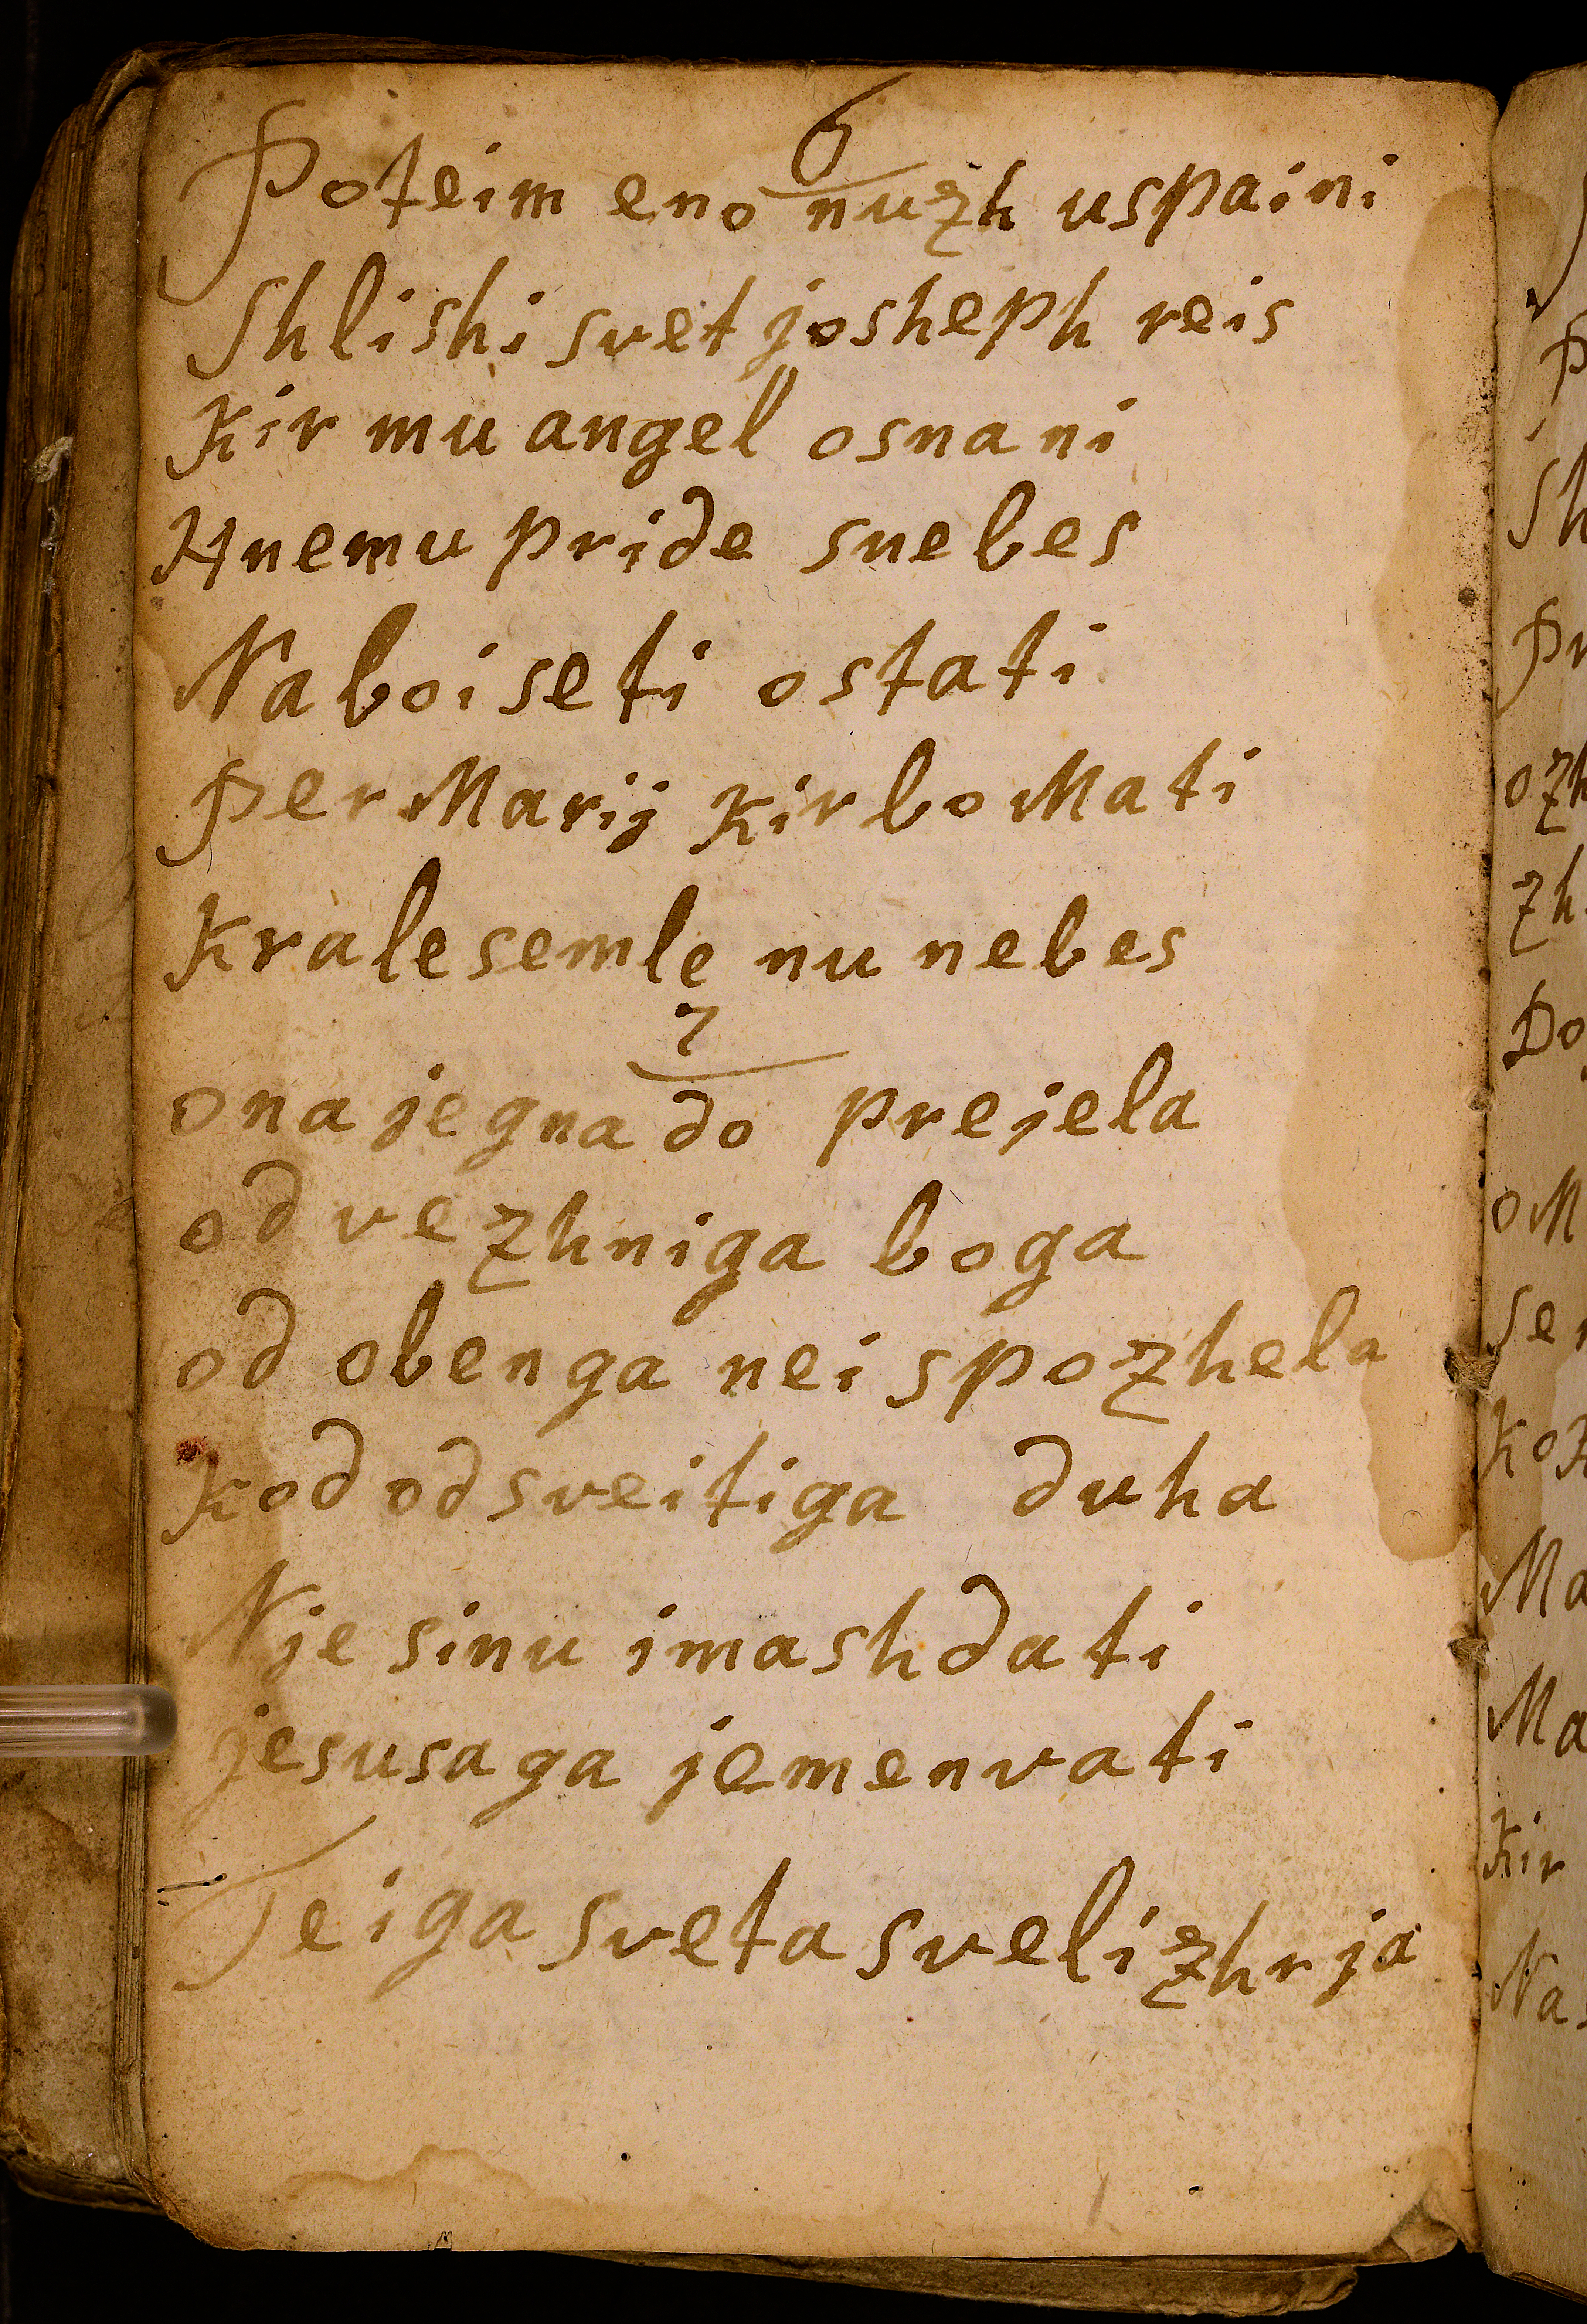 6
Poteim eno nuzh uspaini
Shlishi svet josheph reis
Kir mu angel osnani
Hnemu pride snebes
Naboi se ti ostati
Per Marij Kir bo Mati
Krale semle nu nebes
7
ona je gnado prejela
od vezhniga boga
od obenga nei spozhela
Kod od sveitiga duha
Nje sinu imash dati
jesusa ga jemenvati
Teiga sveta svelizhrja